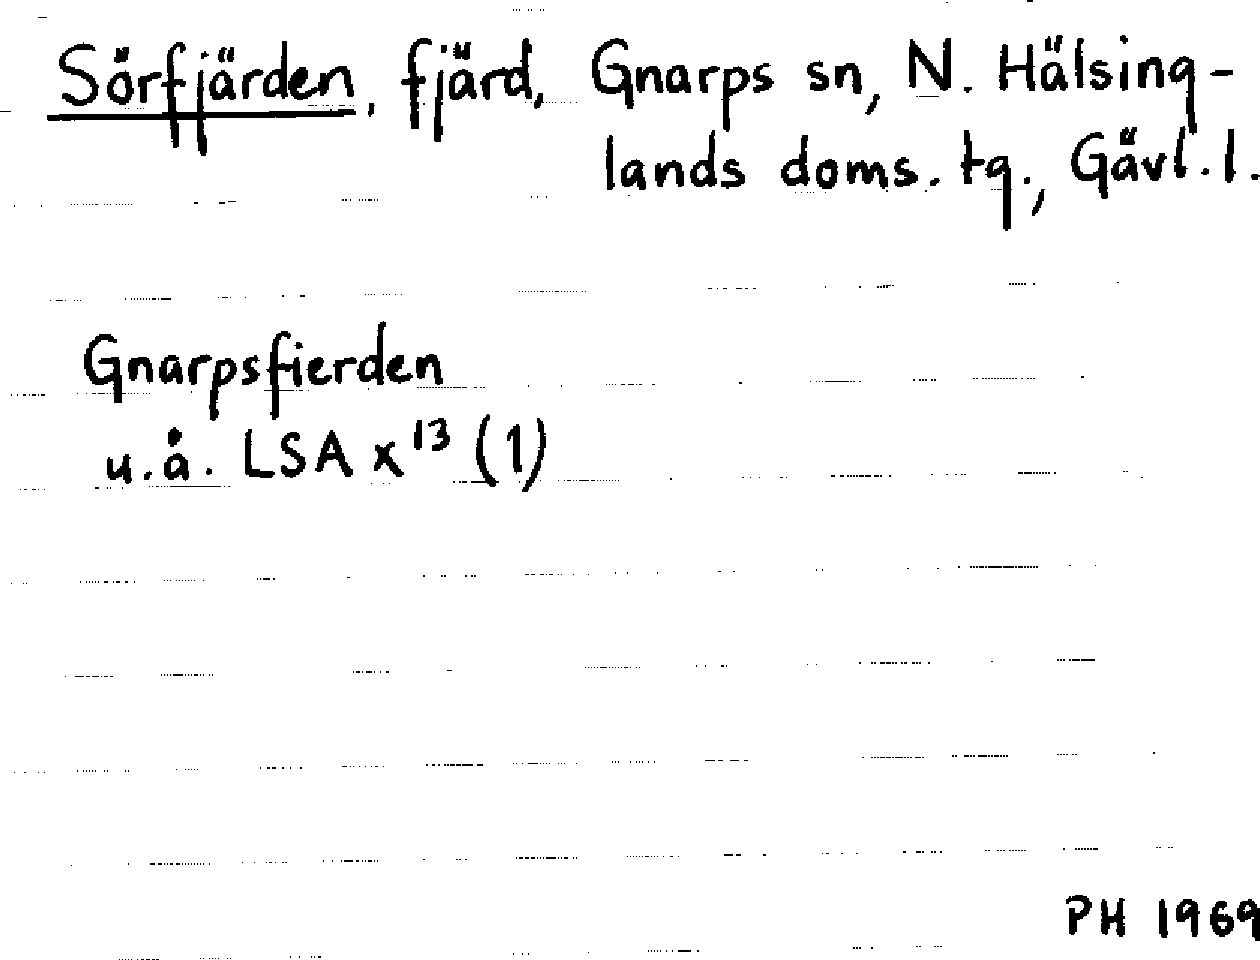 Sörfjärden, fjärd, Gnarps sn, N. Hälsing-
lands doms. tg., Gävl. l.
Gnarpsfierden
u.å. LSA x¹³ (1)
PH 1969